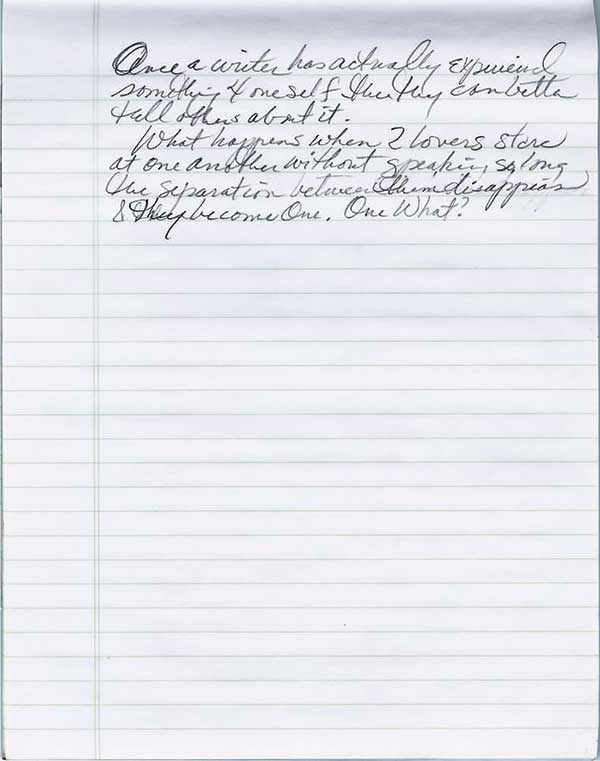 Once a writer has actually experiend
something 4 oneself then they can better
tell others about it.
What happens when 2 lovers stare
at one another without speakin, so long
the separation between them disappears
& they become One. One What?